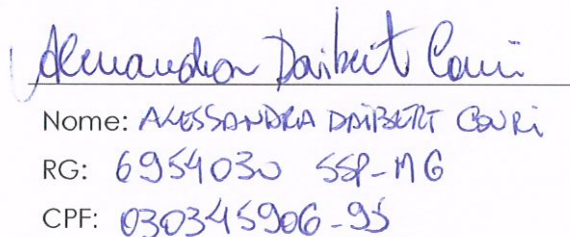 Alessandra Daibert Couri
Nome: ALESSANDRA DAIBERT COURI
RG: 6954030 SSP-MG
CPF: 030345906-95